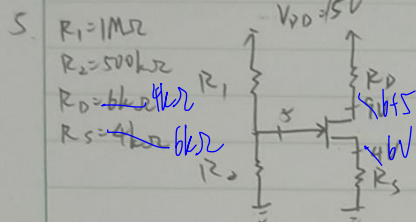 5. R₁=1MΩ
R₂=500kΩ
R_D=6kΩ 4kΩ
R_S=4kΩ 6kΩ
V_DD=15V
R₁
R_D
5
6V
R₂
R_S